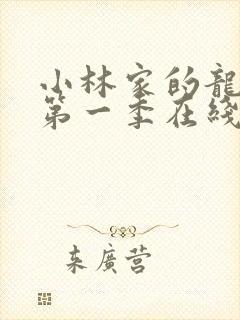 小林家的龍
第一季在綫
来廣营